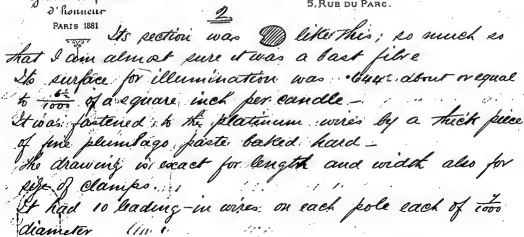 D'honneur
5, RUE DU PARC.
PARIS 1881
2
Its section was like this; so much so
that I am almost sure it was a bast fibre
Its surface for illumination was .644 about or equal
to 6½/1000 of a square inch per candle —
It was fastened to the platinum wires by a thick piece
of fine plumbago paste baked hard —
The drawing is exact for length and width also for
size of clamps.
It had 10 leading-in wires on each pole each of 7/1000
diameter